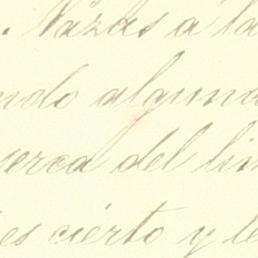 . Nazas á la
ndo alguna
cerca del lin
es cierto y te